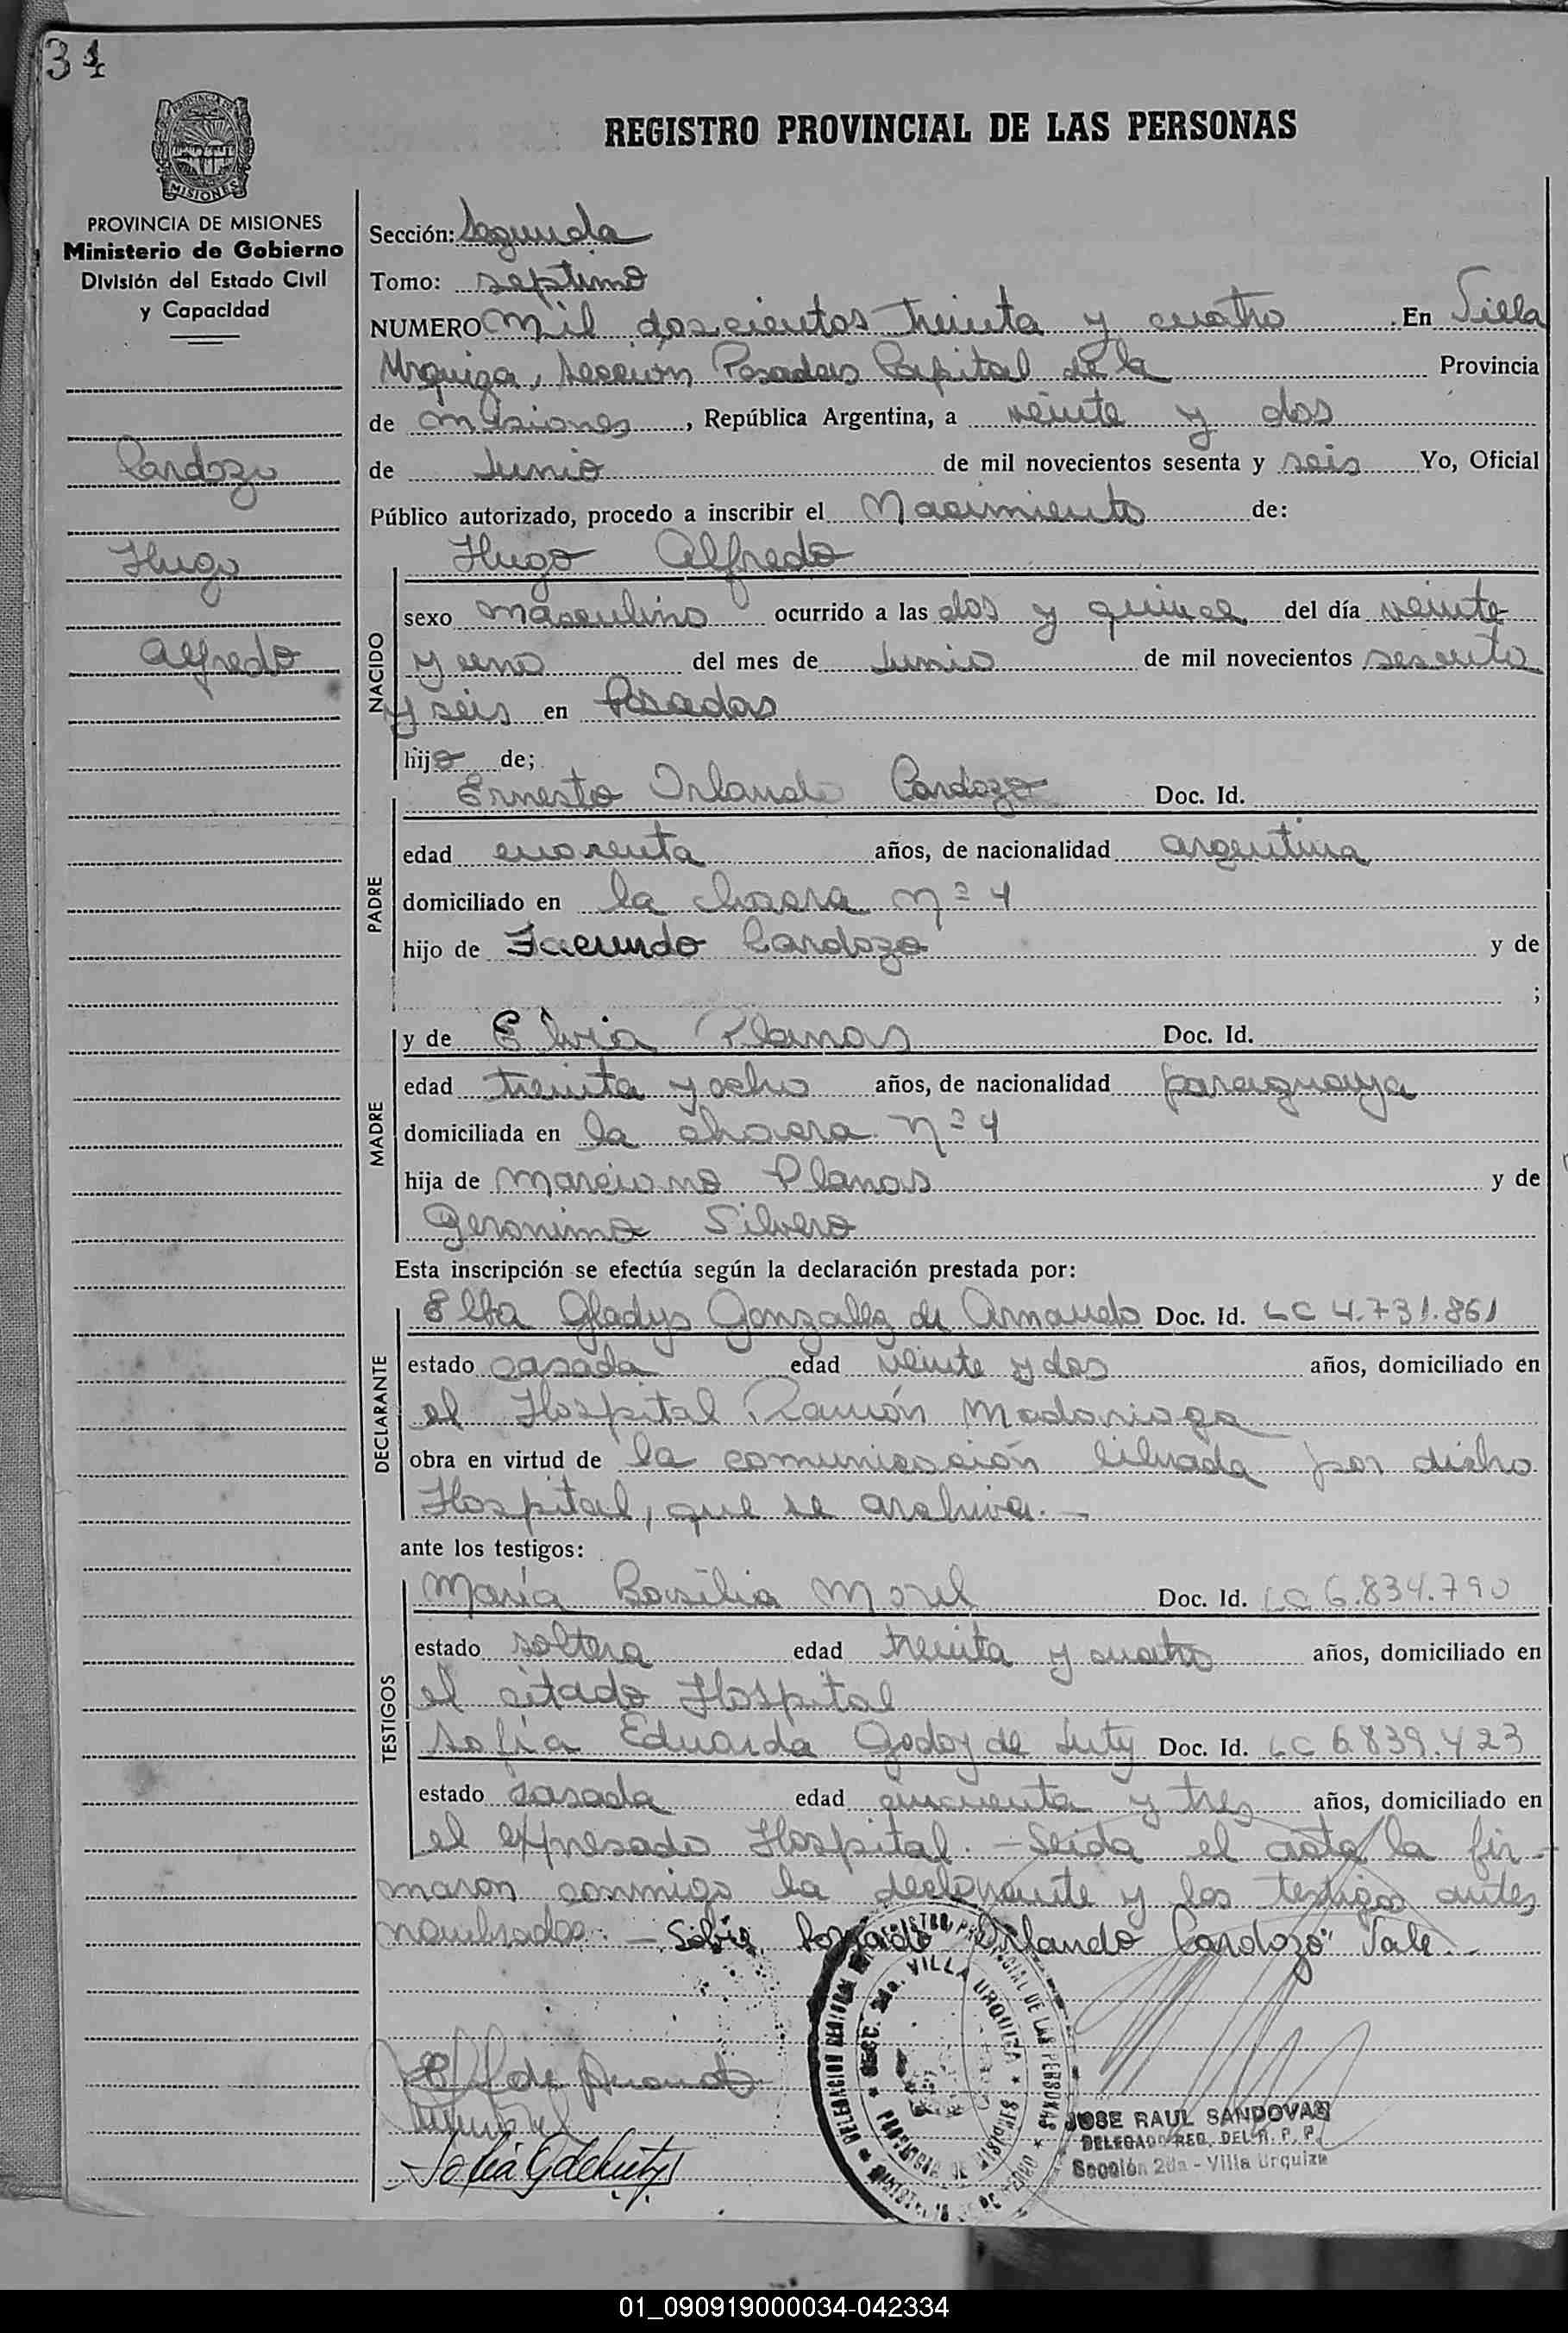 34
REGISTRO PROVINCIAL DE LAS PERSONAS
MISIONES
PROVINCIA DE MISIONES
Ministerio de Gobierno
División del Estado Civil
y Capacidad
Cardozo
Hugo
Alfredo
Sección: Segunda
Tomo: septimo
NUMERO Mil doscientos treinta y cuatro. En Villa
Urquiza, Sección Posadas Capital de la Provincia
de Misiones, República Argentina, a veinte y dos
de Junio de mil novecientos sesenta y seis Yo, Oficial
Público autorizado, procedo a inscribir el Nacimiento de:
NACIDO
Hugo Alfredo
sexo masculino ocurrido a las dos y quince del día veinte
y uno del mes de Junio de mil novecientos sesenta
y seis en Posadas
hijo de;
PADRE
Ernesto Orlando Cardozo Doc. Id.
edad cuarenta años, de nacionalidad argentina
domiciliado en la chacra nº 4
hijo de Facundo Cardozo y de
;
MADRE
y de Elvia Planas Doc. Id.
edad treinta y ocho años, de nacionalidad paraguaya
domiciliada en la chacra nº 4
hija de Marciano Planas y de
Geronima Silvero
Esta inscripción se efectúa según la declaración prestada por:
DECLARANTE
Elba Gladys Gonzalez de Arnaudo Doc. Id. LC 4.731.861
estado casada edad veinte y dos años, domiciliado en
el Hospital Ramón Madariaga
obra en virtud de la comunicación librada por dicho
Hospital, que se archiva.-
ante los testigos:
TESTIGOS
María Basilia Morel Doc. Id. LC 6.834.790
estado soltera edad treinta y cuatro años, domiciliado en
el citado Hospital
Sofía Eduarda Godoy de Luty Doc. Id. LC 6.839.423
estado casada edad cincuenta y tres años, domiciliado en
el expresado Hospital.- Leida el acta la fir-
maron conmigo la declarante y los testigos antes
nombrados.- Sobre borrado "Orlando Cardozo" Vale.-
SECC. 2da. VILLA URQUIZA
PROVINCIA DE MISIONES
REGISTRO PROVINCIAL DE LAS PERSONAS
Sofia G de Luty
JOSE RAUL SANDOVAL
DELEGADO REG. DEL R. P. P.
Sección 2da - Villa Urquiza
01_090919000034-042334